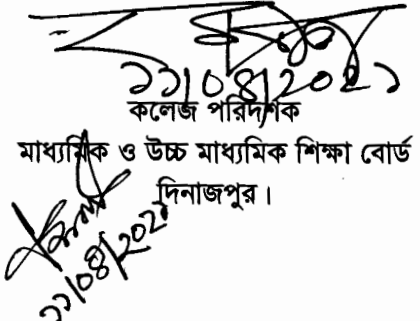 ১১/০৪/২০২১
কলেজ পরিদর্শক
মাধ্যমিক ও উচ্চ মাধ্যমিক শিক্ষা বোর্ড
দিনাজপুর।
১১/০৪/২০২১